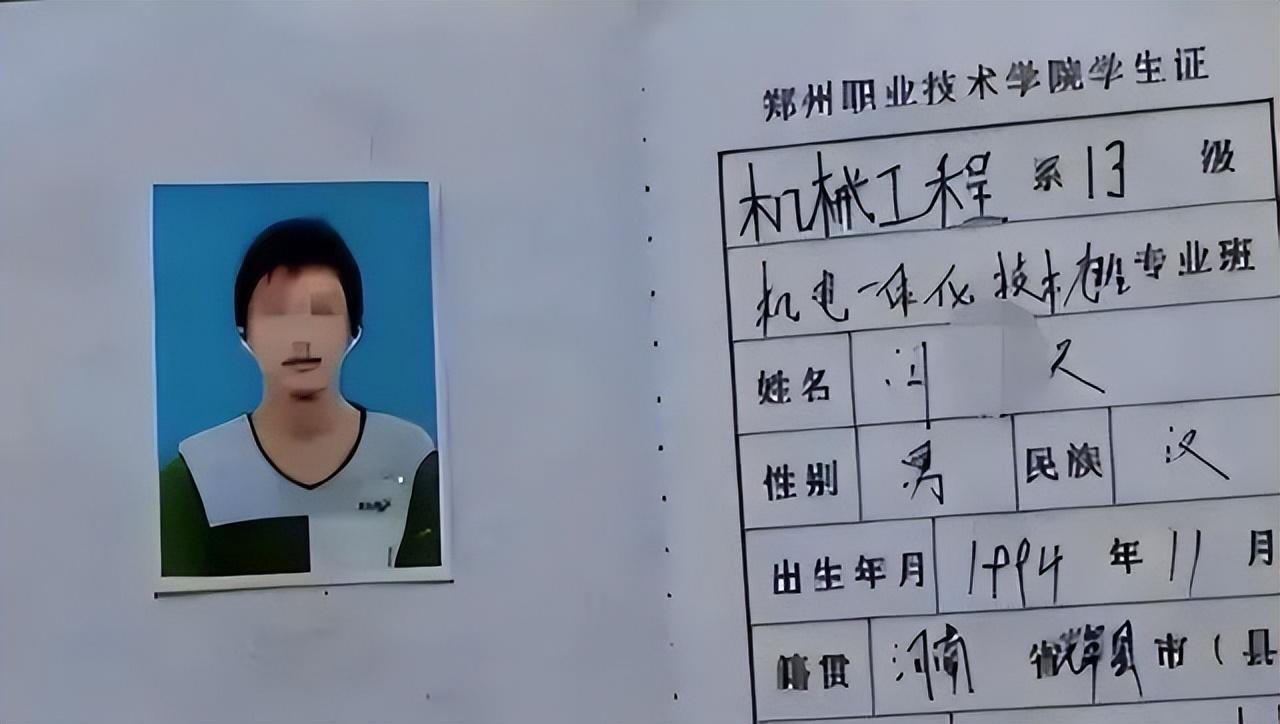 郑州职业技术学院学生证
机械工程 系 13 级
机电一体化技术 专业班
姓名
性别 男 民族 汉
出生年月 1994 年 11 月
籍贯 河南 省 辉县 市（县